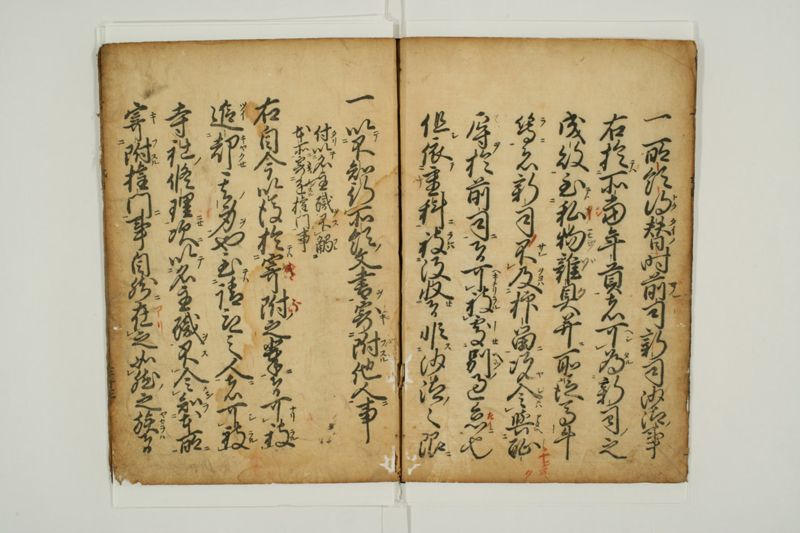 一所領得替時前司新司沙汰事
右於所当年貢者可為新司之
成敗至私物雑具并所従馬牛
等者新司不及抑留況令與恥
辱於前司者可被處別過怠也
但依重科被没収者非沙汰之限
一以不知行所領文書寄附他人事
付以名主職不觸
本所寄進権門事
右自今以後於寄附之輩者可被
追却其身也至請取之人者可被
寺社修理次以名主職不令知本所
寄附権門事自然在之如然之族者